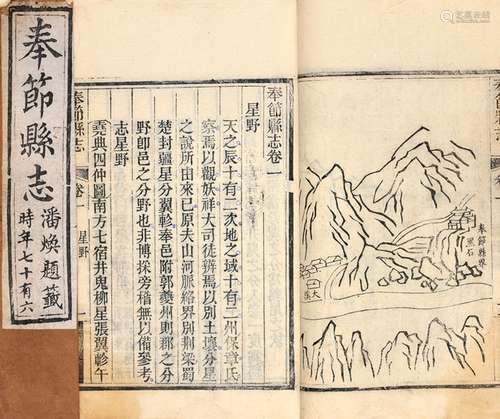 奉節縣志
潘煥題籤
時年七十有六
奉節縣界
黑石
大
奉節縣志卷一
星野
天之辰十有二次地之域十有二州保章氏
察焉以觀妖祥大司徒辨焉以別土壤分星
之說所由來已原夫山河脈絡界別荆梁蜀
楚封疆星分翼軫奉邑附郭夔州則郡之分
野卽邑之分野也非博採旁稽無以備參考
志星野
堯典四仲圖南方七宿井鬼柳星張翼軫午
奉節縣志 卷一 星野 一